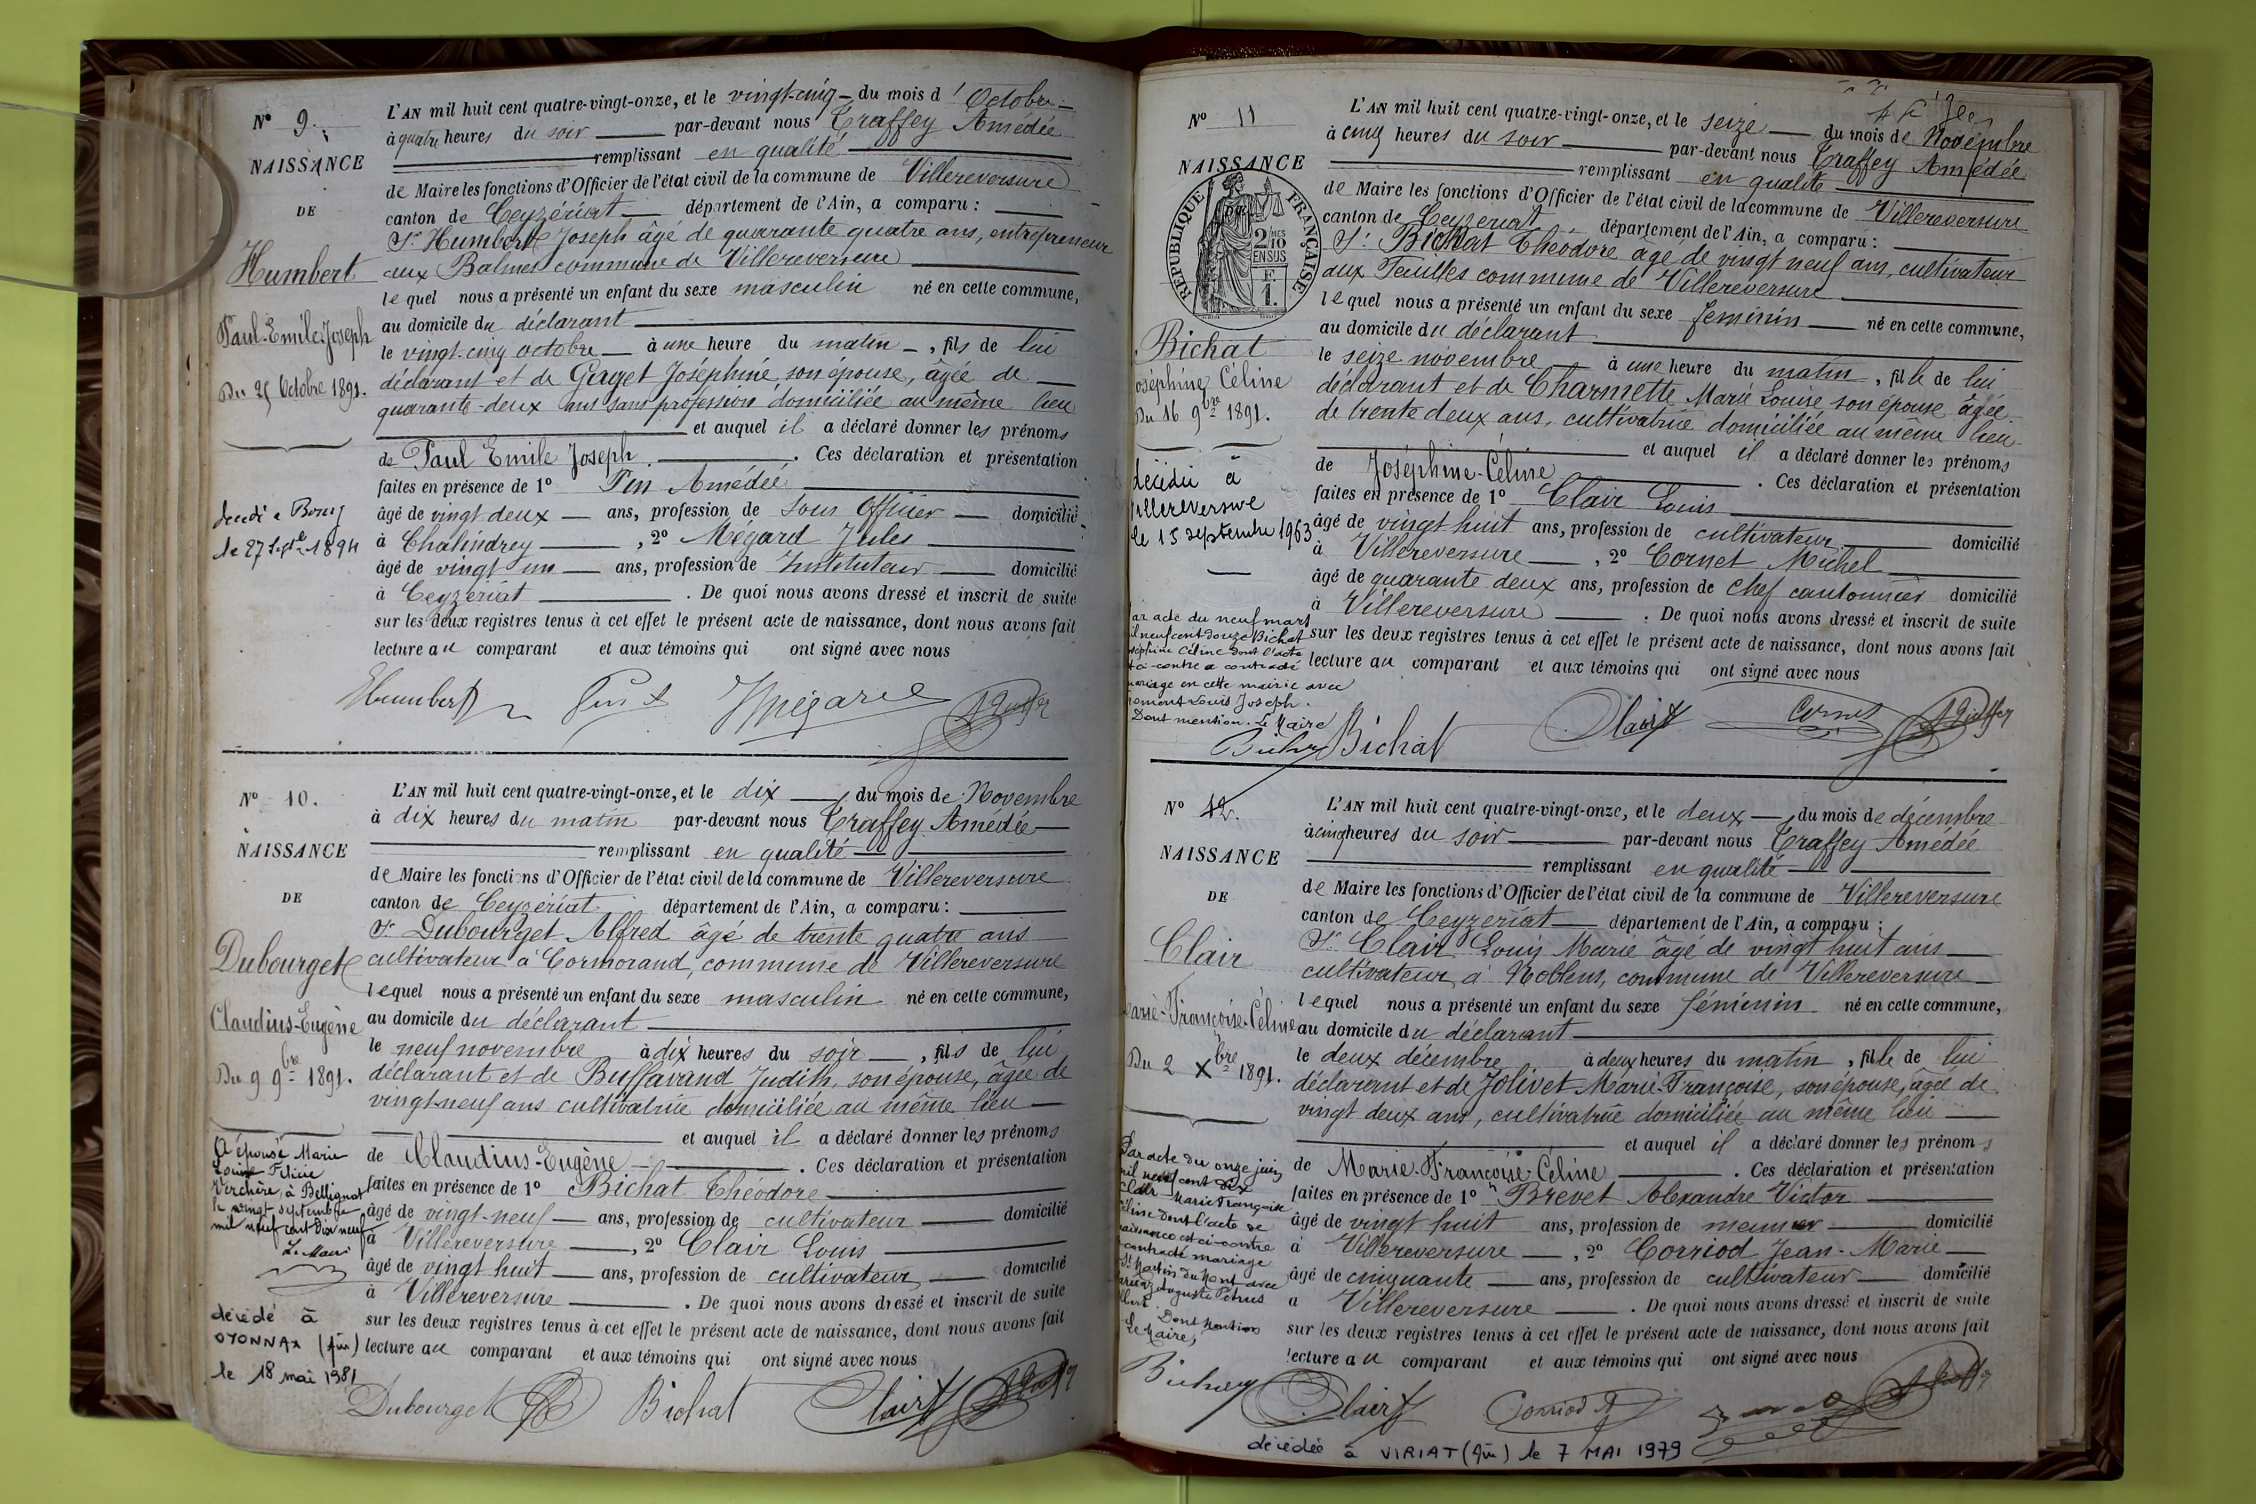 Nº 9.
NAISSANCE
DE
Humbert
Paul-Emile-Joseph
Du 25 Octobre 1891.
décédé à Bourg
le 27 Septe 1894
L'AN mil huit cent quatre-vingt-onze, et le vingt-cinq du mois d'Octobre
à quatre heures du soir par-devant nous Traffey Amédée
remplissant en qualité
de Maire les fonctions d'Officier de l'état civil de la commune de Villereversure
canton de Ceyzériat département de l'Ain, a comparu :
Sr Humbert Joseph âgé de quarante quatre ans, entrepreneur
aux Balmes commune de Villereversure
lequel nous a présenté un enfant du sexe masculin né en cette commune,
au domicile du déclarant
le vingt-cinq octobre à une heure du matin, fils de lui
déclarant et de Guyet Joséphine, son épouse, âgée de
quarante-deux ans sans profession domiciliée au même lieu
et auquel il a déclaré donner les prénoms
de Paul Emile Joseph. Ces déclaration et présentation
faites en présence de 1º Pin Amédée
âgé de vingt-deux ans, profession de Sous Officier domicilié
à Chalindrey, 2º Mégard Jules
âgé de vingt un ans, profession de Instituteur domicilié
à Ceyzériat. De quoi nous avons dressé et inscrit de suite
sur les deux registres tenus à cet effet le présent acte de naissance, dont nous avons fait
lecture au comparant et aux témoins qui ont signé avec nous
Humbert Pin A JMégard ATraffey
Nº 10.
NAISSANCE
DE
Dubourget
Claudius-Eugène
Du 9 9bre 1891.
A épousé Marie
Louise Félicie
Verchère, à Bellignat
le vingt septembre
mil neuf cent dix neuf
Le Maire
décédé à
OYONNAX (Ain)
le 18 mai 1981
L'AN mil huit cent quatre-vingt-onze, et le dix du mois de Novembre
à dix heures du matin par-devant nous Traffey Amédée
remplissant en qualité
de Maire les fonctions d'Officier de l'état civil de la commune de Villereversure
canton de Ceyzériat département de l'Ain, a comparu :
Sr Dubourget Alfred âgé de trente quatre ans
cultivateur à Cormorand, commune de Villereversure
lequel nous a présenté un enfant du sexe masculin né en cette commune,
au domicile du déclarant
le neuf novembre à dix heures du soir, fils de lui
déclarant et de Buffavand Judith, son épouse, âgée de
vingt-neuf ans cultivatrice domiciliée au même lieu
et auquel il a déclaré donner les prénoms
de Claudius-Eugène. Ces déclaration et présentation
faites en présence de 1º Bichat Théodore
âgé de vingt-neuf ans, profession de cultivateur domicilié
à Villereversure, 2º Clair Louis
âgé de vingt huit ans, profession de cultivateur domicilié
à Villereversure. De quoi nous avons dressé et inscrit de suite
sur les deux registres tenus à cet effet le présent acte de naissance, dont nous avons fait
lecture au comparant et aux témoins qui ont signé avec nous
Dubourget Bichat Clair ATraffey
Nº 11
NAISSANCE
RÉPUBLIQUE FRANÇAISE
2 MES
10
EN SUS
F
1.
Bichat
Joséphine Céline
Du 16 9bre 1891.
décédée à
Villereversure
le 15 septembre 1963
Par acte du neuf mars
mil neuf cent douze Bichat
Joséphine Céline dont l'acte
est ci-contre a contracté
mariage en cette mairie avec
Louis Joseph.
Dont mention. Le Maire
L'AN mil huit cent quatre-vingt-onze, et le seize du mois de Novembre
à cinq heures du soir par-devant nous Traffey Amédée
remplissant en qualité
de Maire les fonctions d'Officier de l'état civil de la commune de Villereversure
canton de Ceyzériat département de l'Ain, a comparu :
Sr Bichat Théodore âgé de vingt neuf ans, cultivateur
aux Teuilles commune de Villereversure
lequel nous a présenté un enfant du sexe féminin né en cette commune,
au domicile du déclarant
le seize novembre à une heure du matin, fille de lui
déclarant et de Charmette Marie Louise son épouse âgée
de trente deux ans, cultivatrice domiciliée au même lieu
et auquel il a déclaré donner les prénoms
de Joséphine-Céline. Ces déclaration et présentation
faites en présence de 1º Clair Louis
âgé de vingt huit ans, profession de cultivateur domicilié
à Villereversure, 2º Cornet Michel
âgé de quarante deux ans, profession de chef cantonnier domicilié
à Villereversure. De quoi nous avons dressé et inscrit de suite
sur les deux registres tenus à cet effet le présent acte de naissance, dont nous avons fait
lecture au comparant et aux témoins qui ont signé avec nous
Bichat Clair Cornet ATraffey
Nº 12.
NAISSANCE
DE
Clair
Marie-Françoise-Céline
Du 2 Xbre 1891.
Par acte du onze juin
mil neuf cent dix
Clair Marie Françoise
Céline dont l'acte de
naissance est ci-contre
a contracté mariage
à St Martin du Mont avec
Auguste Pétrus
Dont mention
Le Maire,
L'AN mil huit cent quatre-vingt-onze, et le deux du mois de décembre
à cinq heures du soir par-devant nous Traffey Amédée
remplissant en qualité
de Maire les fonctions d'Officier de l'état civil de la commune de Villereversure
canton de Ceyzériat département de l'Ain, a comparu :
Sr Clair Louis Marie âgé de vingt huit ans
cultivateur à Noblens, commune de Villereversure
lequel nous a présenté un enfant du sexe féminin né en cette commune,
au domicile du déclarant
le deux décembre à deux heures du matin, fille de lui
déclarant et de Jolivet Marie-Françoise, son épouse, âgée de
vingt deux ans, cultivatrice domiciliée au même lieu
et auquel il a déclaré donner les prénoms
de Marie-Françoise-Céline. Ces déclaration et présentation
faites en présence de 1º Brevet Alexandre Victor
âgé de vingt huit ans, profession de meunier domicilié
à Villereversure, 2º Corriod Jean-Marie
âgé de cinquante ans, profession de cultivateur domicilié
à Villereversure. De quoi nous avons dressé et inscrit de suite
sur les deux registres tenus à cet effet le présent acte de naissance, dont nous avons fait
lecture au comparant et aux témoins qui ont signé avec nous
Clair Corriod ATraffey
décédée à VIRIAT (Ain) le 7 MAI 1979